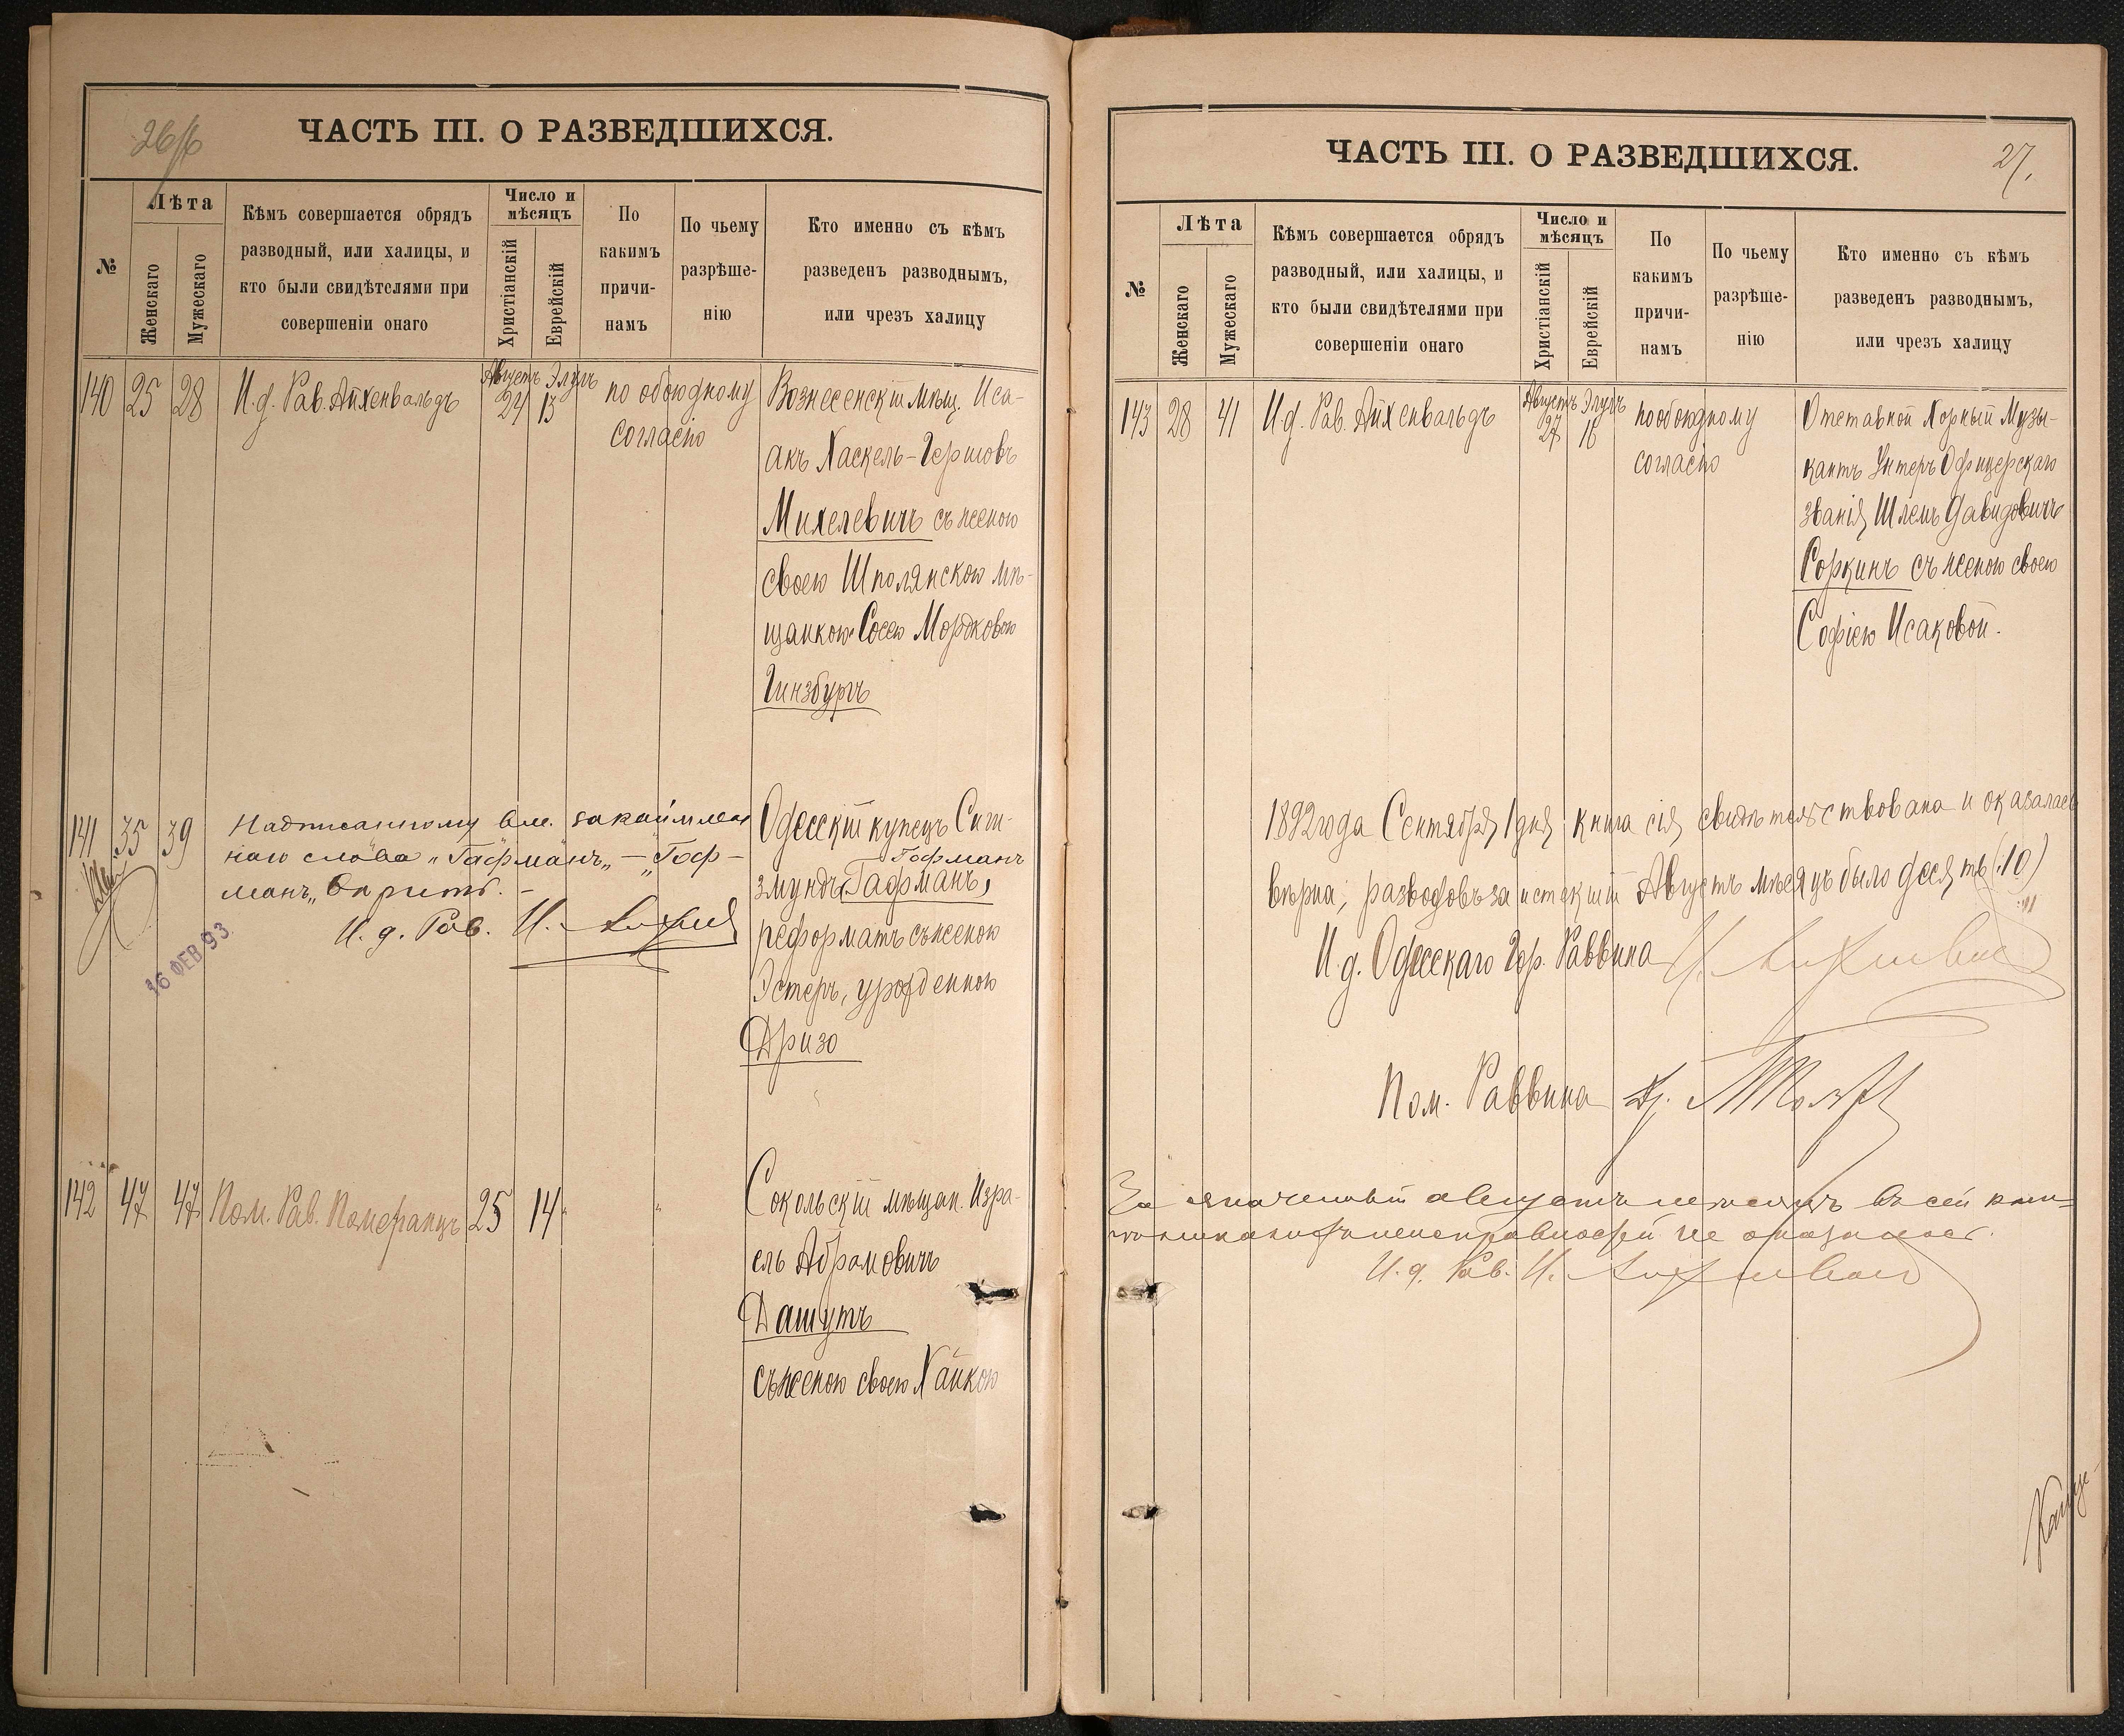 26/б
ЧАСТЬ III. О РАЗВЕДШИХСЯ.
№
Лѣта
Женскаго
Мужескаго
Кѣмъ совершается обрядъ
разводный, или халицы, и
кто были свидѣтелями при
совершеніи онаго
Число и
мѣсяцъ
Христіанскій
Еврейскій
По
какимъ
причи-
намъ
По чьему
разрѣше-
нію
Кто именно съ кѣмъ
разведенъ разводнымъ,
или чрезъ халицу
140 25 28 И.д. Рав. Айхенвальдъ
Августъ 24 Элулъ 13
по обоюдному
согласію
Вознесенскій мѣщ. Иса-
акъ Хаскель-Гершовъ
Михелевичъ съ женою
своею Шполянскою мѣ-
щанкою Сосею Мордковою
Гинзбургъ
141 35 39
Надписанному вм.
наго слова „Гафманъ„ — „Гоф-
манъ„ вѣрить. —
И. д. Рав. И.
16 ФЕВ 93
Одесскій купецъ Сиги-
Гофманъ
змундъ (Гафманъ)
реформатъ съ женою
Эстеръ, урожденною
Дризо
142 47 47 Пом. Рав. Померанцъ 25 14 " "
Сокольскій мѣщан. Изра-
ель Абрамовичъ
Дашутъ
съ женою своею Хайкою
ЧАСТЬ III. О РАЗВЕДШИХСЯ.
27.
№
Лѣта
Женскаго
Мужескаго
Кѣмъ совершается обрядъ
разводный, или халицы, и
кто были свидѣтелями при
совершеніи онаго
Число и
мѣсяцъ
Христіанскій
Еврейскій
По
какимъ
причи-
намъ
По чьему
разрѣше-
нію
Кто именно съ кѣмъ
разведенъ разводнымъ,
или чрезъ халицу
143 28 41 И.д. Рав. Айхенвальдъ
Августъ 27 Элулъ 16
по обоюдному
согласію
Отставной Хорный Музы-
кантъ Унтеръ Офицерскаго
званія Шлемъ Давидовичъ
Соркинъ съ женою своею
Софіею Исаковой.
1892 года Сентября 1 дня книга сія свидѣтельствована и оказалась
вѣрна; разводовъ за истекшій Августъ мѣсяцъ было десять (10)
И.д. Одесскаго Гор. Раввина
Пом. Раввина
За означенный августъ мѣсяцъ въ сей кни-
гѣ никакихъ неисправностей не оказалось.
И. д. Рав. И.